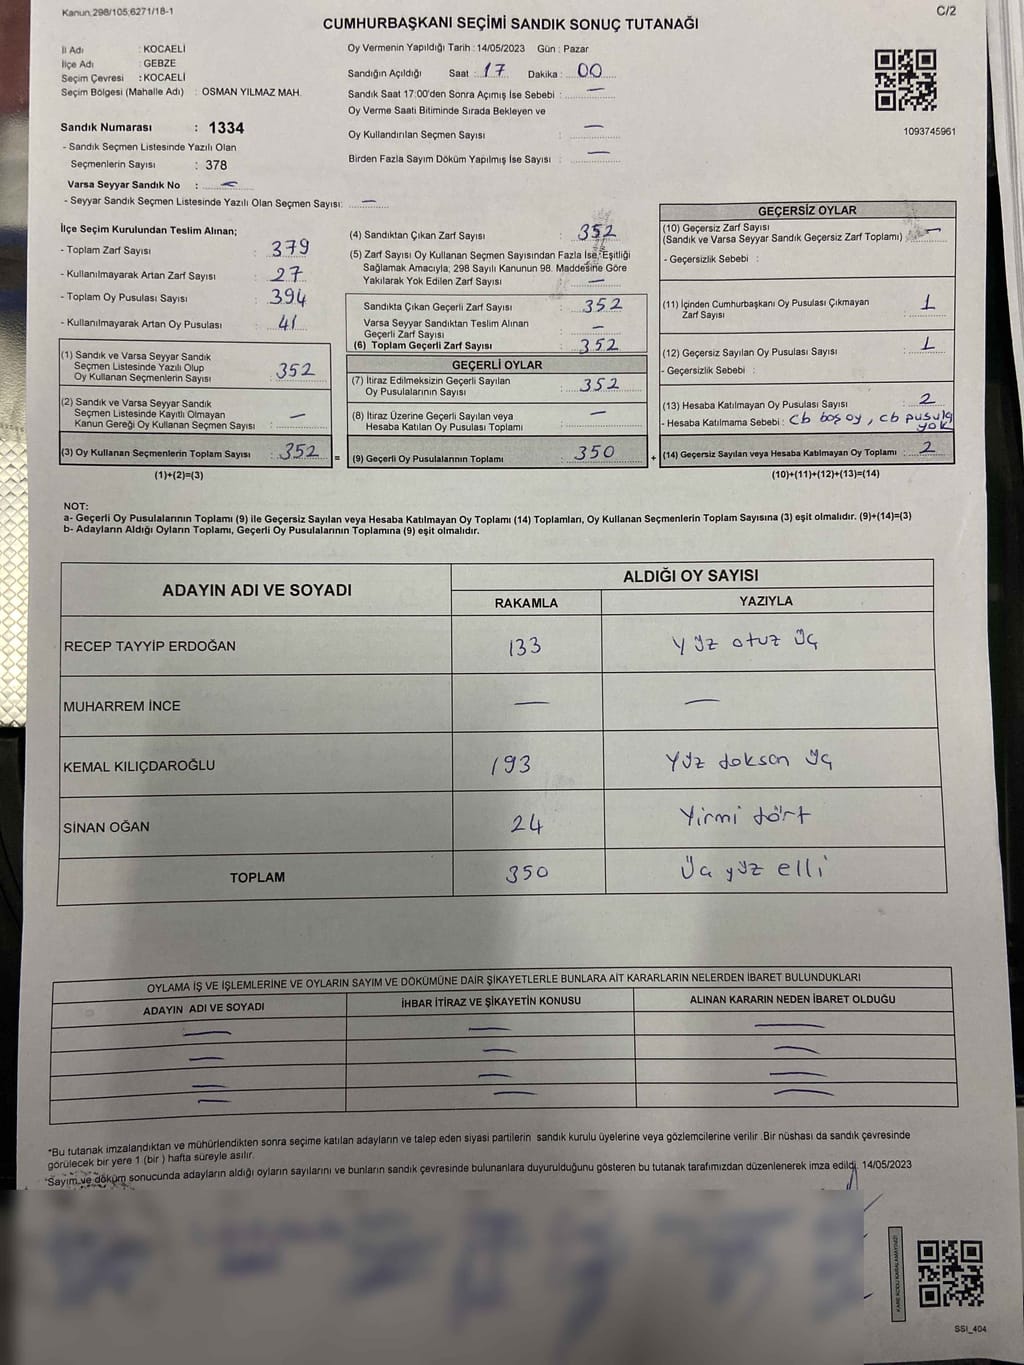 Kanun.298/105;6271/18-1
C/2
CUMHURBAŞKANI SEÇİMİ SANDIK SONUÇ TUTANAĞI
İl Adı : KOCAELİ
İlçe Adı : GEBZE
Seçim Çevresi : KOCAELİ
Seçim Bölgesi (Mahalle Adı) : OSMAN YILMAZ MAH.
Sandık Numarası : 1334
- Sandık Seçmen Listesinde Yazılı Olan
Seçmenlerin Sayısı : 378
Varsa Seyyar Sandık No : —
- Seyyar Sandık Seçmen Listesinde Yazılı Olan Seçmen Sayısı: —
Oy Vermenin Yapıldığı Tarih : 14/05/2023 Gün : Pazar
Sandığın Açıldığı Saat : 17 Dakika : 00
Sandık Saat 17:00'den Sonra Açımış İse Sebebi : —
Oy Verme Saati Bitiminde Sırada Bekleyen ve
Oy Kullandırılan Seçmen Sayısı : —
Birden Fazla Sayım Döküm Yapılmış İse Sayısı : —
1093745961
İlçe Seçim Kurulundan Teslim Alınan;
- Toplam Zarf Sayısı : 379
- Kullanılmayarak Artan Zarf Sayısı : 27
- Toplam Oy Pusulası Sayısı : 394
- Kullanılmayarak Artan Oy Pusulası : 41
(1) Sandık ve Varsa Seyyar Sandık
Seçmen Listesinde Yazılı Olup
Oy Kullanan Seçmenlerin Sayısı : 352
(2) Sandık ve Varsa Seyyar Sandık
Seçmen Listesinde Kayıtlı Olmayan
Kanun Gereği Oy Kullanan Seçmen Sayısı : —
(3) Oy Kullanan Seçmenlerin Toplam Sayısı : 352 =
(1)+(2)=(3)
(4) Sandıktan Çıkan Zarf Sayısı : 352
(5) Zarf Sayısı Oy Kullanan Seçmen Sayısından Fazla İse, Eşitliği
Sağlamak Amacıyla; 298 Sayılı Kanunun 98. Maddesine Göre
Yakılarak Yok Edilen Zarf Sayısı : —
Sandıkta Çıkan Geçerli Zarf Sayısı : 352
Varsa Seyyar Sandıktan Teslim Alınan
Geçerli Zarf Sayısı : —
(6) Toplam Geçerli Zarf Sayısı : 352
GEÇERLİ OYLAR
(7) İtiraz Edilmeksizin Geçerli Sayılan
Oy Pusulalarının Sayısı : 352
(8) İtiraz Üzerine Geçerli Sayılan veya
Hesaba Katılan Oy Pusulası Toplamı : —
(9) Geçerli Oy Pusulalarının Toplamı : 350 +
GEÇERSİZ OYLAR
(10) Geçersiz Zarf Sayısı
(Sandık ve Varsa Seyyar Sandık Geçersiz Zarf Toplamı) : —
- Geçersizlik Sebebi :
(11) İçinden Cumhurbaşkanı Oy Pusulası Çıkmayan
Zarf Sayısı : 1
(12) Geçersiz Sayılan Oy Pusulası Sayısı : 1
- Geçersizlik Sebebi :
(13) Hesaba Katılmayan Oy Pusulası Sayısı : 2
- Hesaba Katılmama Sebebi : cb boş oy, cb pusula
yok
(14) Geçersiz Sayılan veya Hesaba Katılmayan Oy Toplamı : 2
(10)+(11)+(12)+(13)=(14)
NOT:
a- Geçerli Oy Pusulalarının Toplamı (9) ile Geçersiz Sayılan veya Hesaba Katılmayan Oy Toplamı (14) Toplamları, Oy Kullanan Seçmenlerin Toplam Sayısına (3) eşit olmalıdır. (9)+(14)=(3)
b- Adayların Aldığı Oyların Toplamı, Geçerli Oy Pusulalarının Toplamına (9) eşit olmalıdır.
ADAYIN ADI VE SOYADI ALDIĞI OY SAYISI
RAKAMLA YAZIYLA
RECEP TAYYİP ERDOĞAN 133 Yüz otuz üç
MUHARREM İNCE — —
KEMAL KILIÇDAROĞLU 193 Yüz doksan üç
SİNAN OĞAN 24 Yirmi dört
TOPLAM 350 Üç yüz elli
OYLAMA İŞ VE İŞLEMLERİNE VE OYLARIN SAYIM VE DÖKÜMÜNE DAİR ŞİKAYETLERLE BUNLARA AİT KARARLARIN NELERDEN İBARET BULUNDUKLARI
ADAYIN ADI VE SOYADI İHBAR İTİRAZ VE ŞİKAYETİN KONUSU ALINAN KARARIN NEDEN İBARET OLDUĞU
— — —
— — —
— — —
— — —
*Bu tutanak imzalandıktan ve mühürlendikten sonra seçime katılan adayların ve talep eden siyasi partilerin sandık kurulu üyelerine veya gözlemcilerine verilir .Bir nüshası da sandık çevresinde
görülecek bir yere 1 (bir ) hafta süreyle asılır.
*Sayım ve döküm sonucunda adayların aldığı oyların sayılarını ve bunların sandık çevresinde bulunanlara duyurulduğunu gösteren bu tutanak tarafımızdan düzenlenerek imza edildi. 14/05/2023
SSI_404